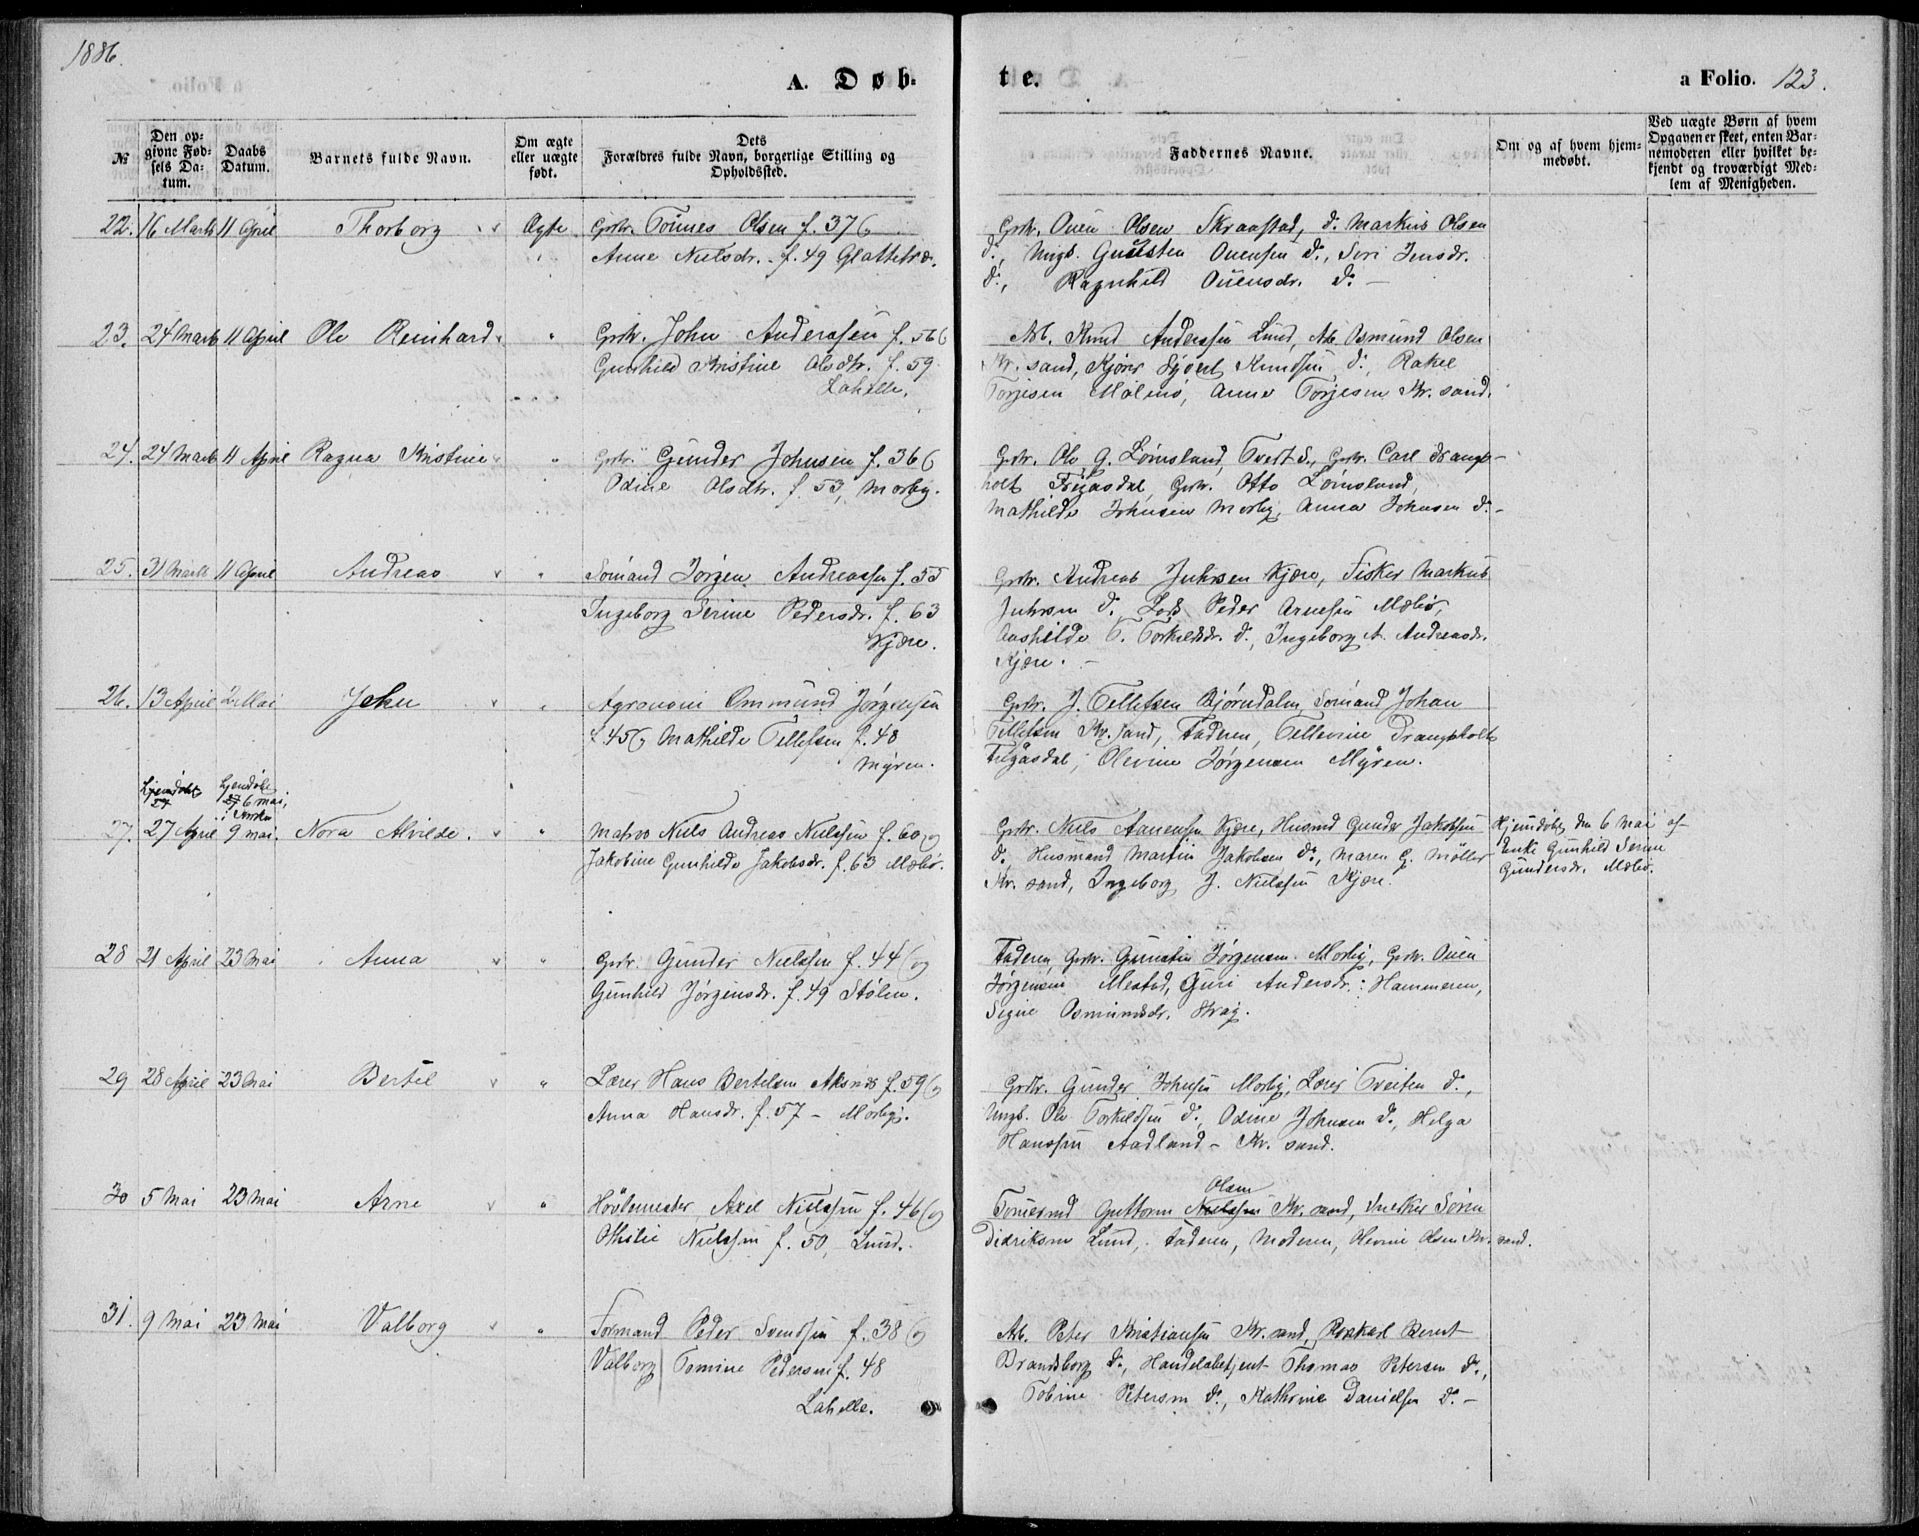 1886.
A. Døbte.
a Folio. 123.
№
Den opgivne Fødsels Datum.
Daabs Datum.
Barnets fulde Navn.
Om ægte eller uægte født.
Dets Forældres fulde Navn, borgerlige Stilling og Opholdssted.
Faddernes Navne.
Om og af hvem hjemmedøbt.
Ved uægte Børn af hvem Opgaven er skeet, enten Barnemoderen eller hvilket bekjendt og troværdigt Medlem af Menigheden.
22. 16 Marts 11 April Thorborg Ægte
Grbr. Tønnes Olsen f. 37 &
Anne Nielsdr. f. 49 Glattetræ.
Grbr. Ouen Olsen Skraastad, do Markus Olsen
do, Ungk. Gunsten Ouensen do, Siri Jensdr.
do, Ragnhild Ouensdr. do —
23. 24 Marts 11 April Ole Reinhard "
Grbr. John Anderssen f. 56 &
Gunhild Kristine Olsdtr. f. 59
Lahelle.
Arb. Knud Anderssen Lund, Arb. Osmund Olsen
Kr.sand, Kjører Sjovert Knudsen do, Rakel
Torjesen Malmø, Anne Torjesen Kr.sand.
24. 24 Marts 11 April Ragna Kristine "
Grbr. Gunder Johnsen f. 36 &
Odine Olsdtr. f. 53, Morby.
Grbr. Ole G. Lømsland, Tveit S., Grbr. Carl Drangsholt
Frigasdal, Grbr. Otto Lømsland,
Mathilde Johnsen Morby, Anna Johnsen do —
25. 31 Marts 11 April Andreas "
Sømand Jørgen Andreassen f. 55
Ingeborg Serine Pedersdr. f. 63
Kjære.
Grbr. Andreas Juhlsen Kjære, Fisker Markus
Juhlsen do, Lods Peder Arnesen Mæbø,
Aashilde T. Torkeldsdr. do, Ingeborg A. Andreasdr.
Kjære. —
26. 13 April 2 Mai John "
Agronom Ommund Jørgensen
f. 45 & Mathilde Tellefsen f. 48
Myren.
Grbr. J. Tellefsen Bjørndalen, Sømand Johan
Tellefsen Kr.sand, Faderen, Tellevine Drangsholt
Frigåsdal, Olevine Jørgensen Myren.
Hjemdøbt
6 mai,
i Kirken
27. 27 April 9 mai. Nora Alvilde "
Matros Niels Andreas Nielsen f. 60 og
Jakobine Gunhilde Jakobsdr. f. 63 Mæbø.
Grbr. Niels Aanensen Kjære, Husmd Gunder Jakobsen
do, Husmand Martin Jakobsen do, Maren G. Møller
Kr.sand, Ingeborg J. Nielsen Kjære.
Hjemdøbt den 6 Mai af
Enke Gunhild Serine
Gundersdr. Mæbø.
28 21 April 23 Mai Anna "
Grbr. Gunder Nielsen f. 44 & og
Gunhild Jørgensdr. f. 49 Stølen.
Faderen, Grbr. Gunsten Jørgensen Morby, Grbr. Ouen
Jørgensen Mestad, Guri Andersdr. Hammeren,
Signe Osmundsdr. Krag.
29 28 April 23 Mai Bertel "
Lærer Hans Bertelsen Aksnes f. 59 & og
Anna Hansdr. f. 57 — Morby.
Grbr. Gunder Johnsen Morby, Lærer Tveiten do,
Ungk. Ole Torkeldsen do, Odine Johnsen do, Helga
Hanssen Aadland — Kr.sand.
30 5 Mai 23 Mai Arne "
Høvlemester Axel Nielsen f. 46 & og
Othilie Nielsen f. 50, Lund.
Olsen
Tømmermd Guttorm Nielsen Kr.sand, Snekker Søren
Didriksen Lund, Faderen, Moderen, Olevine Olsen Kr.sand.
31. 9 Mai 23 Mai Valborg "
Formand Peder Svendsen f. 38 & og
Valborg Tomine Pedersen f. 48
Lahelle.
Arb. Peter Kristiansen Kr.sand, Bernt
Brandsborg do, Handelsbetjent Thomas Petersen do,
Tobine Petersen do, Kathrine Danielsen do —